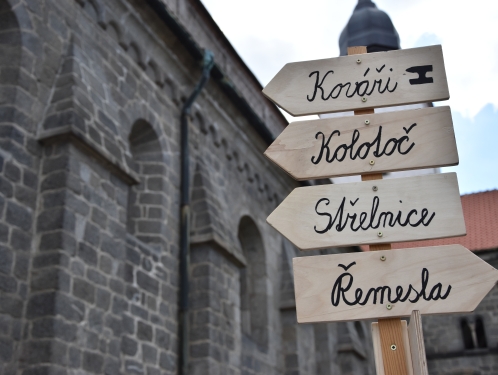 Kováři
Kolotoč
Střelnice
Řemesla